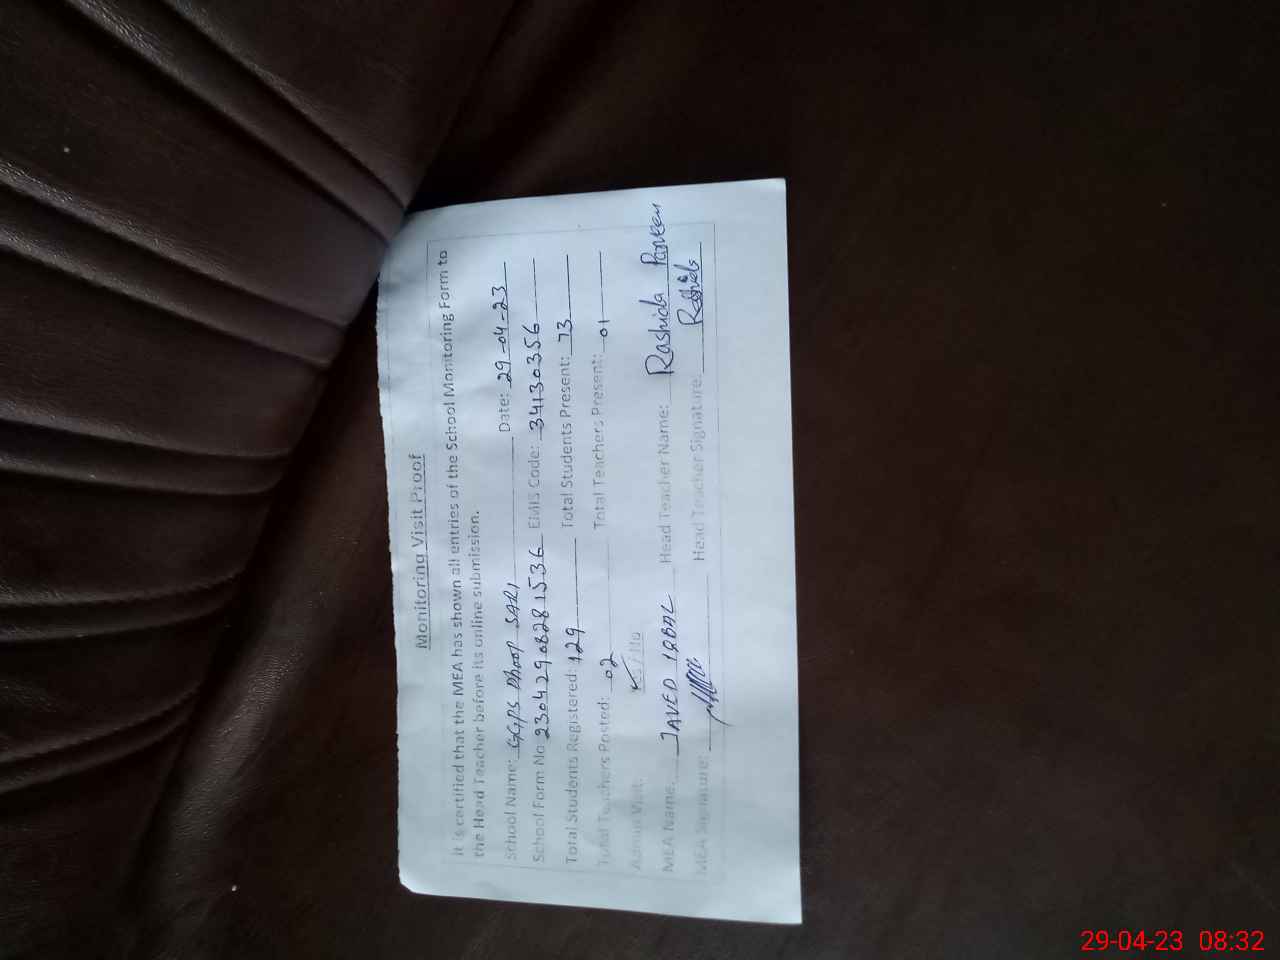 Monitoring Visit Proof
It is certified that the MEA has shown all entries of the School Monitoring Form to
the Head Teacher before its online submission.
School Name: GGPS Dhoop SARI Date: 29-04-23
School Form No 23042908281536 EMIS Code: 34130356
Total Students Registered: 129 Total Students Present: 73
Total Teachers Posted: 02 Total Teachers Present: 01
Admin Visit: Yes / No
MEA Name: JAVED IQBAL Head Teacher Name: Rashida Parveen
MEA Signature: Head Teacher Signature: Rashida
29-04-23 08:32